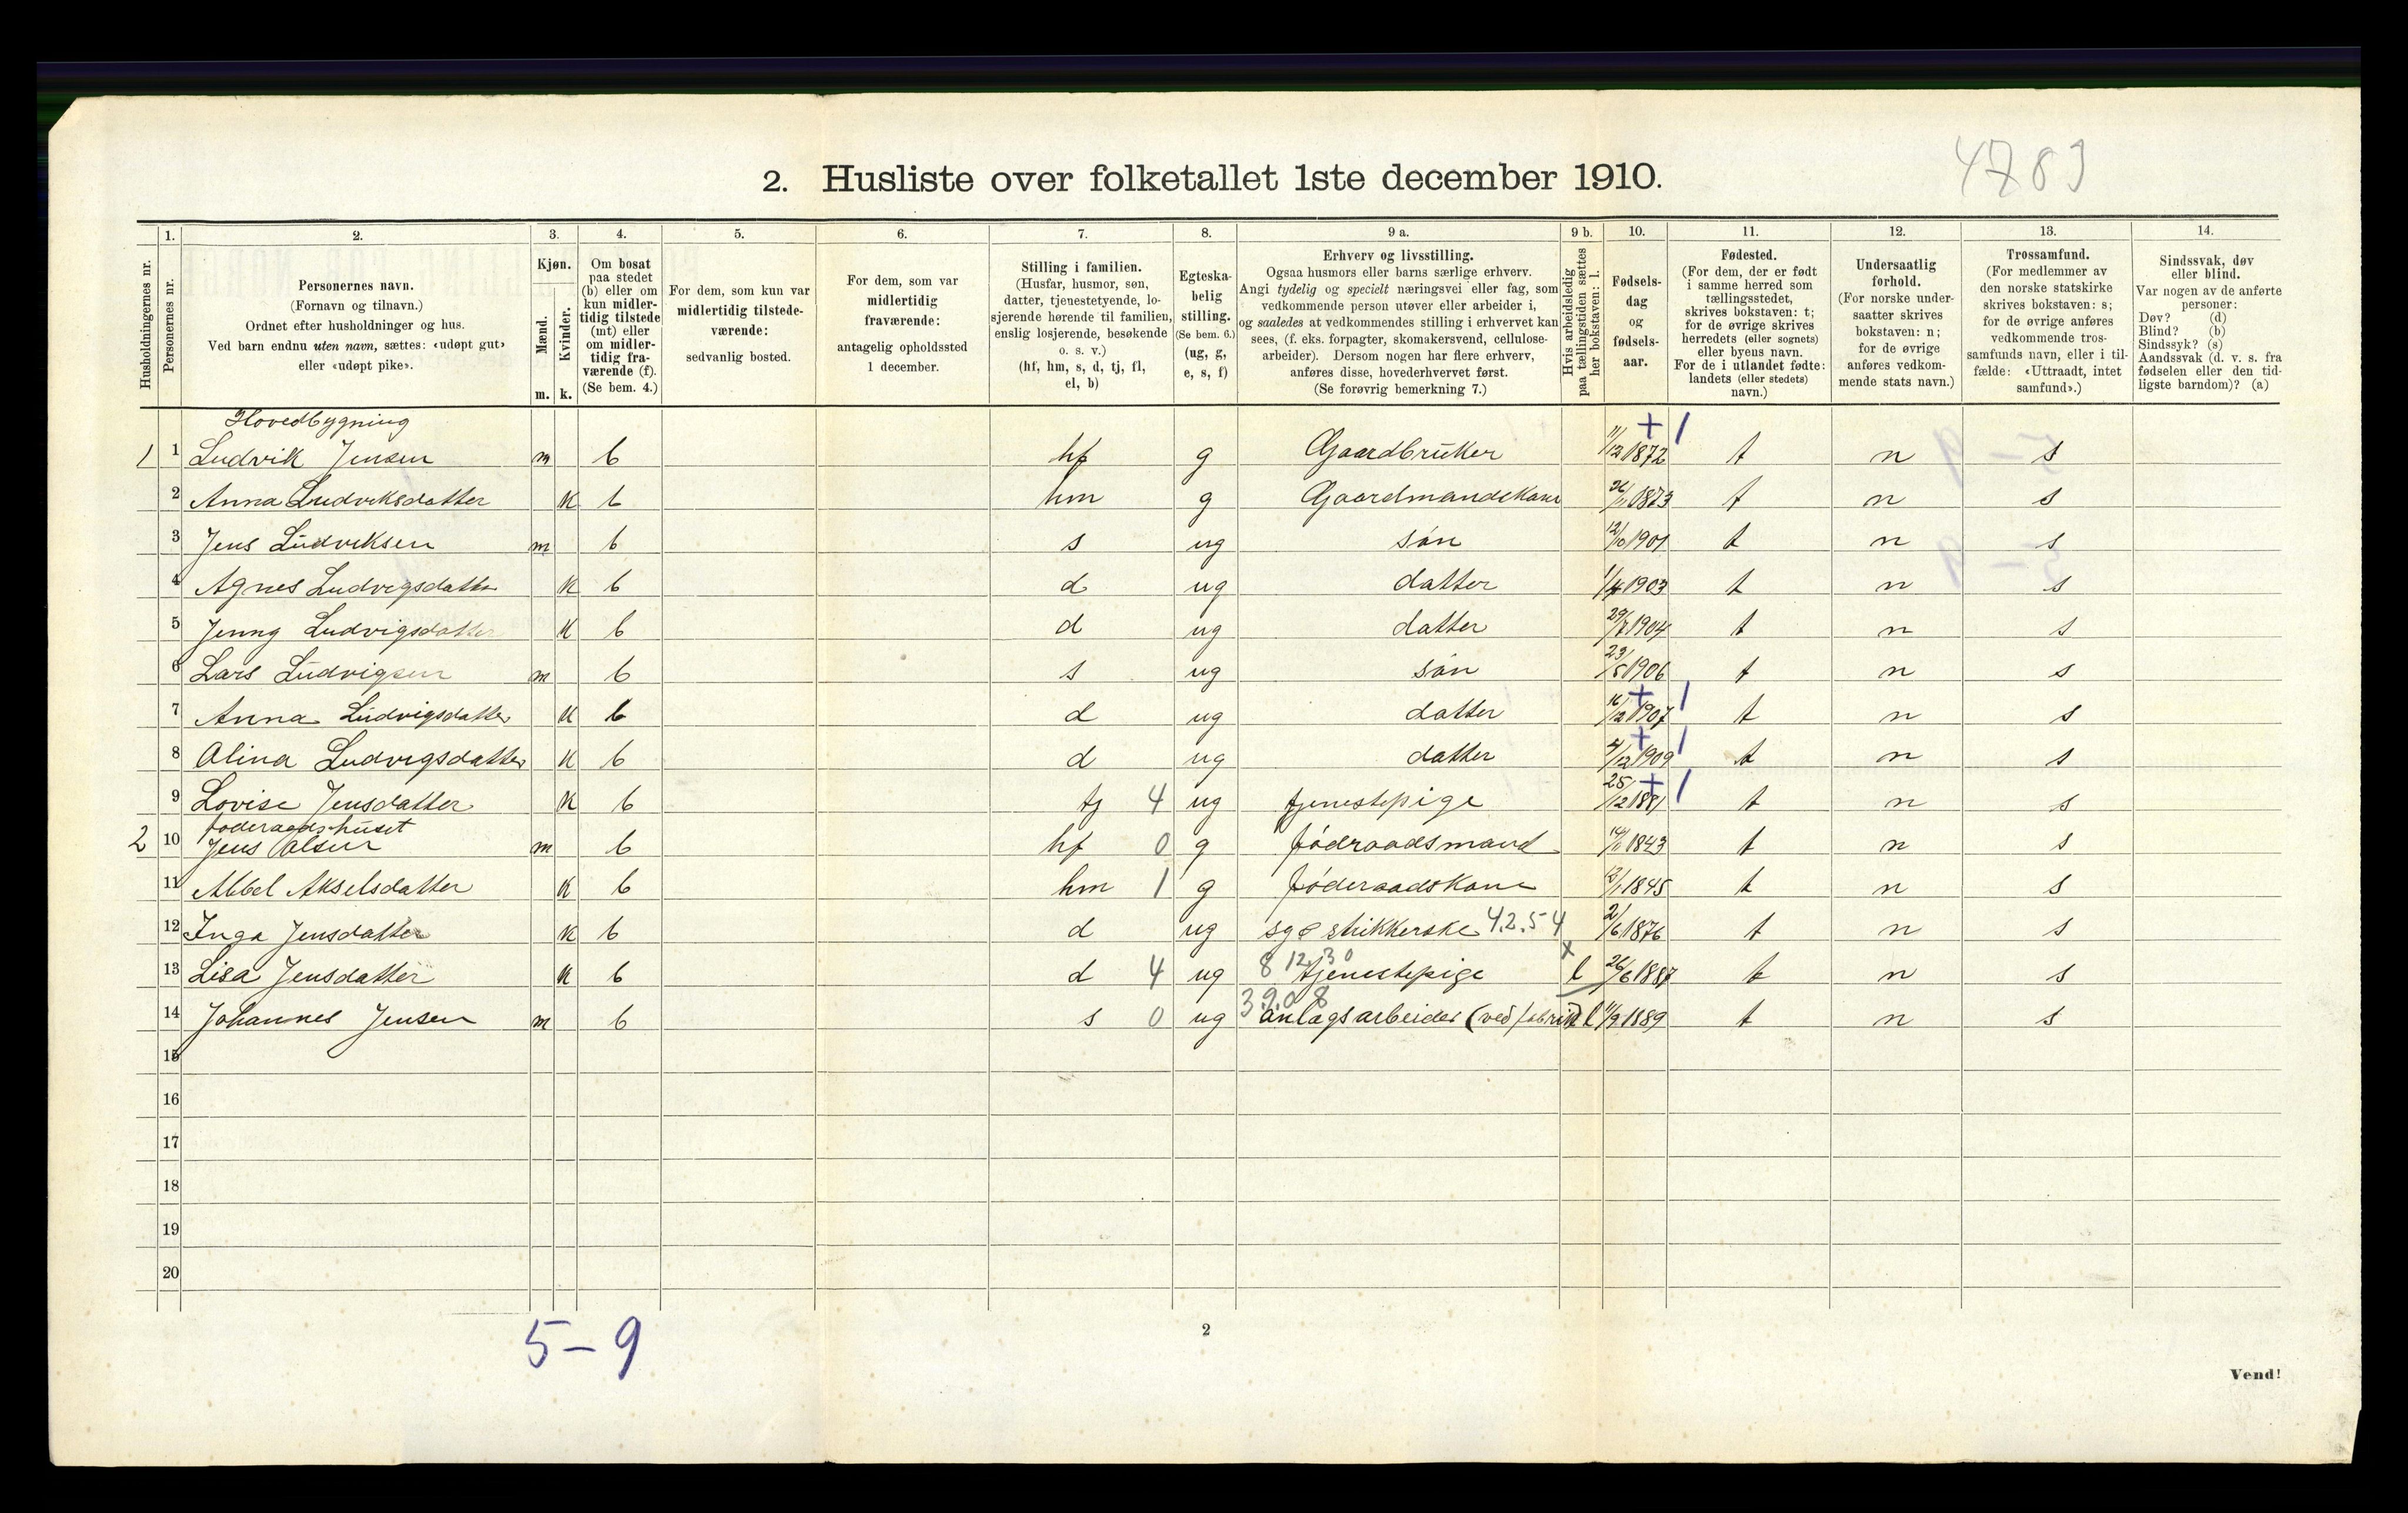 4783
2. Husliste over folketallet 1ste december 1910.
Husholdningernes nr.
1. Personernes nr.
2. Personernes navn.
(Fornavn og tilnavn.)
Ordnet efter husholdninger og hus.
Ved barn endnu uten navn, sættes: «udøpt gut»
eller «udøpt pike».
3. Kjøn.
Mænd. m.
Kvinder. k.
4. Om bosat
paa stedet
(b) eller om
kun midler-
tidig tilstede
(mt) eller
om midler-
tidig fra-
værende (f).
(Se bem. 4.)
5. For dem, som kun var
midlertidig tilstede-
værende:
sedvanlig bosted.
6. For dem, som var
midlertidig
fraværende:
antagelig opholdssted
1 december.
7. Stilling i familien.
(Husfar, husmor, søn,
datter, tjenestetyende, lo-
sjerende hørende til familien,
enslig losjerende, besøkende
o. s. v.)
(hf, hm, s, d, tj, fl,
el, b)
8. Egteska-
belig
stilling.
(Se bem. 6.)
(ug, g,
e, s, f)
9 a. Erhverv og livsstilling.
Ogsaa husmors eller barns særlige erhverv.
Angi tydelig og specielt næringsvei eller fag, som
vedkommende person utøver eller arbeider i,
og saaledes at vedkommendes stilling i erhvervet kan
sees, (f. eks. forpagter, skomakersvend, cellulose-
arbeider). Dersom nogen har flere erhverv,
anføres disse, hovederhvervet først.
(Se forøvrig bemerkning 7.)
9 b. Hvis arbeidsledig
paa tællingstiden sættes
her bokstaven: l.
10. Fødsels-
dag
og
fødsels-
aar.
11. Fødested.
(For dem, der er født
i samme herred som
tællingsstedet,
skrives bokstaven: t;
for de øvrige skrives
herredets (eller sognets)
eller byens navn.
For de i utlandet fødte:
landets (eller stedets)
navn.)
12. Undersaatlig
forhold.
(For norske under-
saatter skrives
bokstaven: n;
for de øvrige
anføres vedkom-
mende stats navn.)
13. Trossamfund.
(For medlemmer av
den norske statskirke
skrives bokstaven: s;
for de øvrige anføres
vedkommende tros-
samfunds navn, eller i til-
fælde: «Uttraadt, intet
samfund».)
14. Sindssvak, døv
eller blind.
Var nogen av de anførte
personer:
Døv? (d)
Blind? (b)
Sindssyk? (s)
Aandssvak (d. v. s. fra
fødselen eller den tid-
ligste barndom)? (a)
Hovedbygning
1 1 Ludvik Jensen m b hf g Gaardbruker 11/12 1872 + / t n s
2 Anna Ludviksdatter k b hm g Gaardmandskone 1873 t n s
3 Jens Ludviksen m b s ug søn 12/10 1901 t n s
4 Agnes Ludvigsdatter k b d ug datter 1/4 1903 t n s
5 Jenny Ludvigsdatter k b d ug datter 29/7 1904 t n s
6 Lars Ludvigsen m b s ug søn 23/8 1906 t n s
7 Anna Ludvigsdatter k b d ug datter 16/12 1907 + / t n s
8 Olina Ludvigsdatter k b d ug datter /12 1909 + / t n s
9 Lovise Jensdatter k b tj 4 ug tjenestepige 25/12 1881 + / t n s
føderaadshuset
2 10 Jens Olsen m b hf 0 g föderaadsmand 1843 t n s
11 Abbel Akselsdatter k b hm 1 g föderaadskone 1845 t n s
12 Inga Jensdatter k b d ug sy & strikkerske 4.2.54 2/6 1876 t n s
13 Lisa Jensdatter k b d 4 ug 8 12.30 tjenestepige x l 26/6 1887 t n s
14 Johannes Jensen m b s 0 ug 3.9.08 anlægsarbeider (ved fabrik) l /9 1889 t n s
15
16
17
18
19
20
5-9
2
Vend!